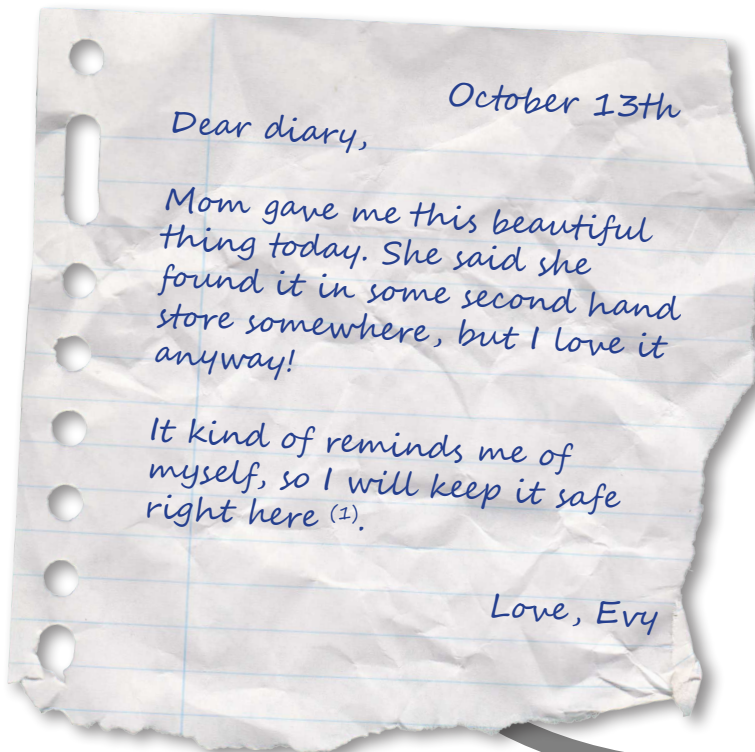 October 13th
Dear diary,
Mom gave me this beautiful
thing today. She said she
found it in some second hand
store somewhere, but I love it
anyway!
It kind of reminds me of
myself, so I will keep it safe
right here (1).
Love, Evy